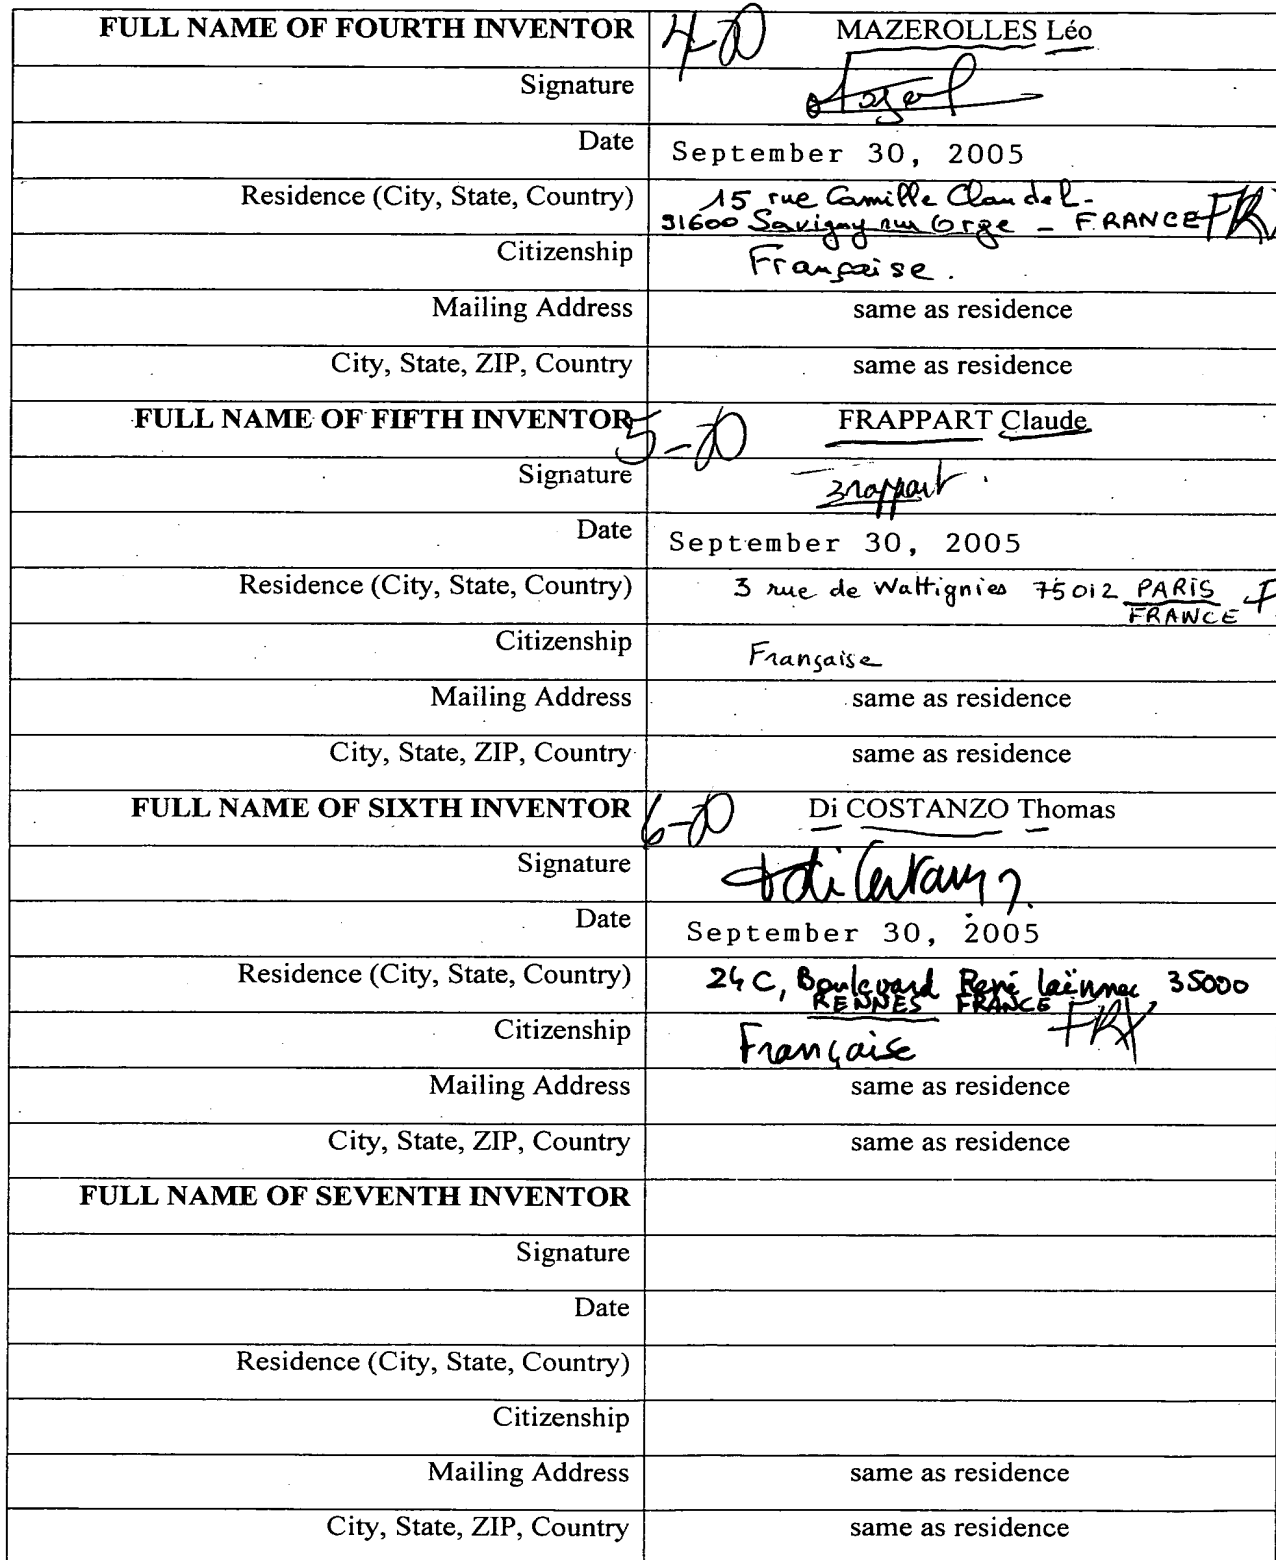 FULL NAME OF FOURTH INVENTOR MAZEROLLES Léo
Signature
Date September 30, 2005
Residence (City, State, Country) 15 rue Camille Claudel -
91600 Savigny sur Orge - FRANCE FRX
Citizenship Française.
Mailing Address same as residence
City, State, ZIP, Country same as residence
FULL NAME OF FIFTH INVENTOR FRAPPART Claude
Signature Frappart
Date September 30, 2005
Residence (City, State, Country) 3 rue de Wattignies 75012 PARIS
FRANCE
Citizenship Française
Mailing Address same as residence
City, State, ZIP, Country same as residence
FULL NAME OF SIXTH INVENTOR Di COSTANZO Thomas
Signature
Date September 30, 2005
Residence (City, State, Country) 24 C, Boulevard René laënnec 35000
RENNES FRANCE FRX
Citizenship Française
Mailing Address same as residence
City, State, ZIP, Country same as residence
FULL NAME OF SEVENTH INVENTOR
Signature
Date
Residence (City, State, Country)
Citizenship
Mailing Address same as residence
City, State, ZIP, Country same as residence